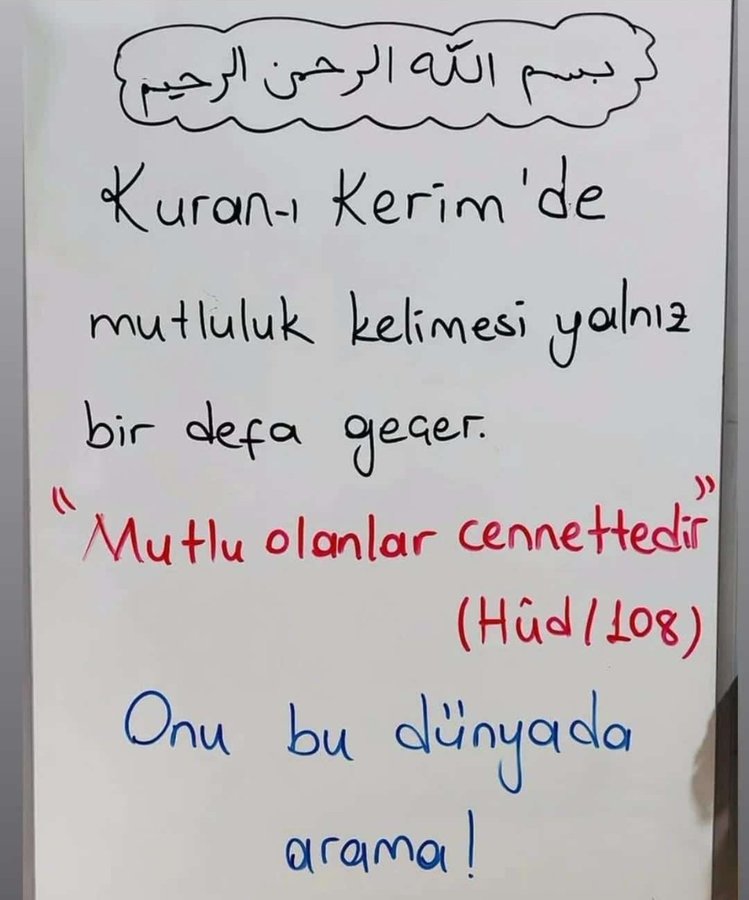 بسم الله الرحمن الرحيم
Kuran-ı Kerim'de
mutluluk kelimesi yalnız
bir defa geçer.
"Mutlu olanlar cennettedir"
(Hûd/108)
Onu bu dünyada
arama!